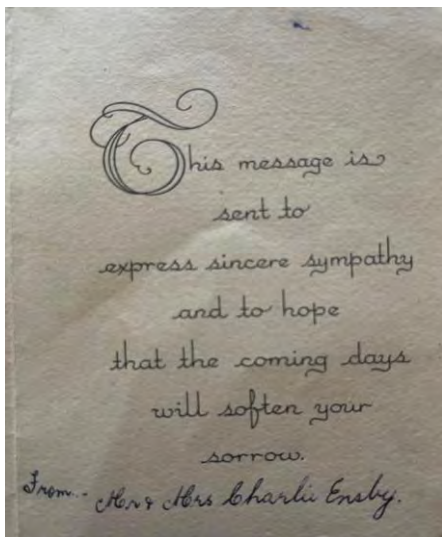 This message is
sent to
express sincere sympathy
and to hope
that the coming days
will soften your
sorrow.
From.. Mr & Mrs Charlie Ensby.